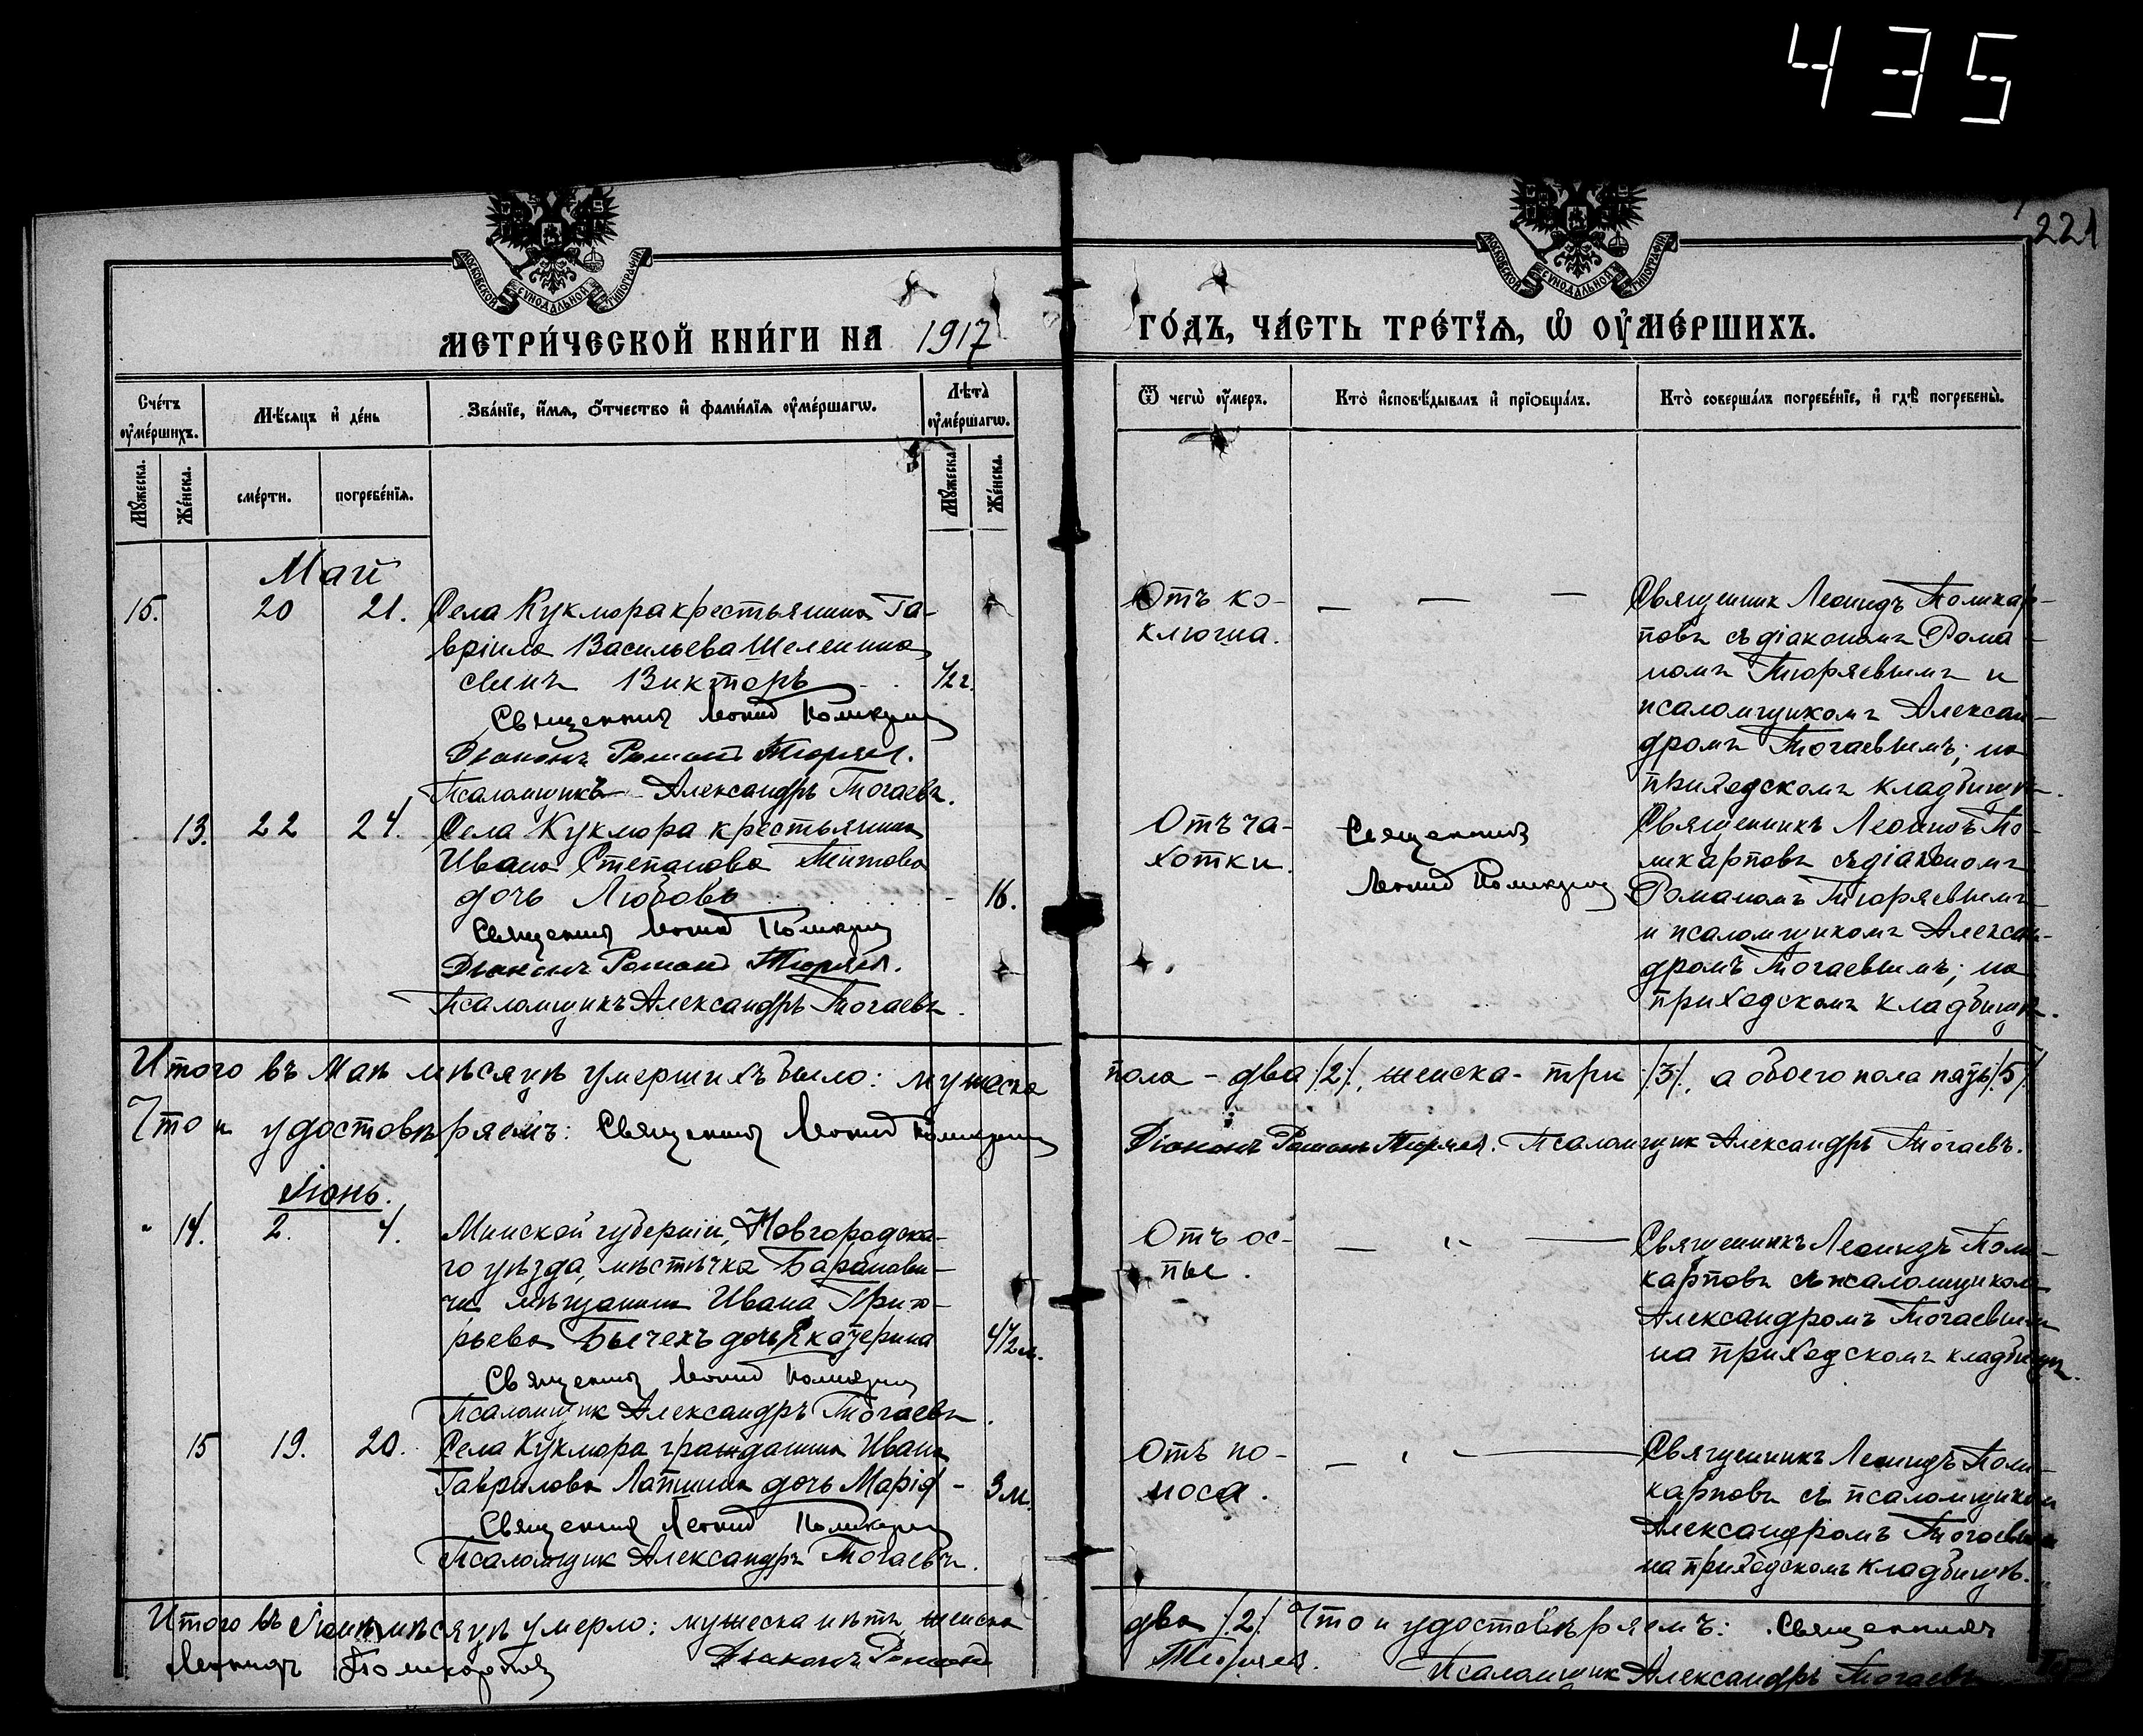 435
221
МОСКОВСКОЙ СУНОДАЛЬНОЙ ТИПОГРАФІИ
МОСКОВСКОЙ СУНОДАЛЬНОЙ ТИПОГРАФІИ
МЕТРИ́ЧЕСКОЙ КНИ́ГИ НА 1917
ГО́ДЪ, ЧА́СТЬ ТРЕ́ТЇѦ, Ѡ҆ ОУ҆МЕ́РШИХЪ.
Сче́тъ оу҆ме́ршихъ.
Мѣ́сѧцъ и҆ де́нь
Зва́нїе, и҆́мѧ, ѻ҆́тчество и҆ фами́лїѧ оу҆ме́ршагѡ.
Лѣ́та оу҆ме́ршагѡ.
Ѿ чегѡ̀ оу҆́меръ.
Кто̀ и҆сповѣ́дывалъ и҆ прїѻбща́лъ.
Кто̀ соверша́лъ погребе́нїе, и҆ гдѣ̀ погребены̀.
Мꙋ́жеска.
Же́нска.
сме́рти.
погребе́нїѧ.
Мꙋ́жеска.
Же́нска.
Май
15. 20 21. Села Кукмора крестьянина Га-
вріила Васильева Шеленина
сынъ Викторъ 1/2 г.
Священникъ Леонид Поликарпов
Діаконъ Роман Тюряев.
Псаломщикъ Александръ Тогаевъ.
Отъ ко-
клюша.
— — —
Священник Леонидъ Поликар-
повъ съ діаконом Рома-
номъ Тюряевымъ и
псаломщикомъ Алексан-
дромъ Тогаевымъ; на
приходскомъ кладбищѣ.
13. 22 24. Села Кукмора крестьянина
Ивана Степанова Титова
дочь Любовь - 16.
Священникъ Леонид Поликарпов
Діаконъ Роман Тюряев.
Псаломщикъ Александръ Тогаевъ.
Отъ ча-
хотки.
Священникъ
Леонид Поликарпов
Священникъ Леонидъ По-
ликарповъ съ діакономъ
Романомъ Тюряевымъ
и псаломщикомъ Алексан-
дромъ Тогаевымъ; на
приходскомъ кладбищѣ.
Итого въ Маѣ мѣсяцѣ умершихъ было: мужеска
пола - два /2/, женска - три /3/, а обоего пола пять /5/
Что и удостовѣряемъ: Священникъ Леонид Поликарпов
Діаконъ Романъ Тюряев. Псаломщик Александръ Тогаевъ.
Іюнь.
" 14. 2. 4. Минской губерніи, Новгородска-
го уѣзда, мѣстечка Баранови-
чи мѣщанина Ивана Григо-
рьева дочь Екатерина 4 1/2 м.
Священникъ Леонид Поликарпов
Псаломщик Александръ Тогаевъ.
Отъ ос-
пы.
— " —
Священникъ Леонидъ Поли-
карповъ съ псаломщиком
Александромъ Тогаевымъ
на приходскомъ кладбищѣ.
15 19. 20. Села Кукмора гражданина Ивана
Гаврилова Лапшина дочь Марія - 3 м.
Священникъ Леонид Поликарпов
Псаломщик Александръ Тогаевъ.
Отъ по-
носа.
— " —
Священникъ Леонидъ Поли-
карповъ съ псаломщиком
Александромъ Тогаевымъ
на приходскомъ кладбищѣ.
Итого въ Іюнѣ мѣсяцѣ умерло: мужеска нѣтъ, женска
два /2/. Что и удостовѣряемъ: Священникъ
Леонидъ Поликарпов Діаконъ Роман
Тюряев. Псаломщик Александръ Тогаевъ